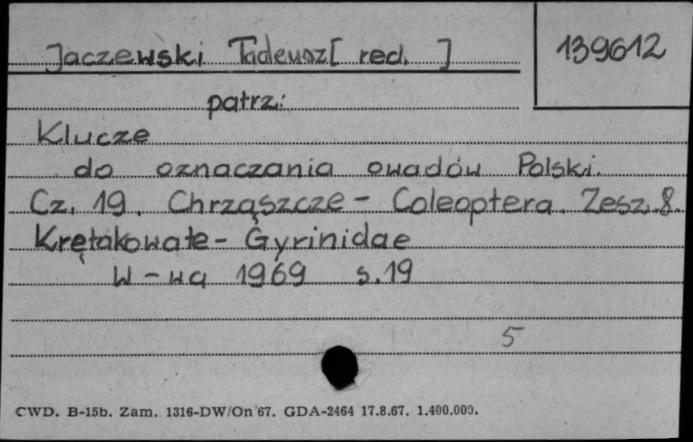 Jaczewski Tadeusz [ red. ]
139612
patrz:
Klucze
do oznaczania owadów Polski.
Cz. 19. Chrząszcze - Coleoptera. Zesz. 8.
Krętakowate - Gyrinidae
W-wa 1969 s. 19
5
CWD. B-15b. Zam. 1316-DW/On 67. GDA-2464 17.8.67. 1.400.000.